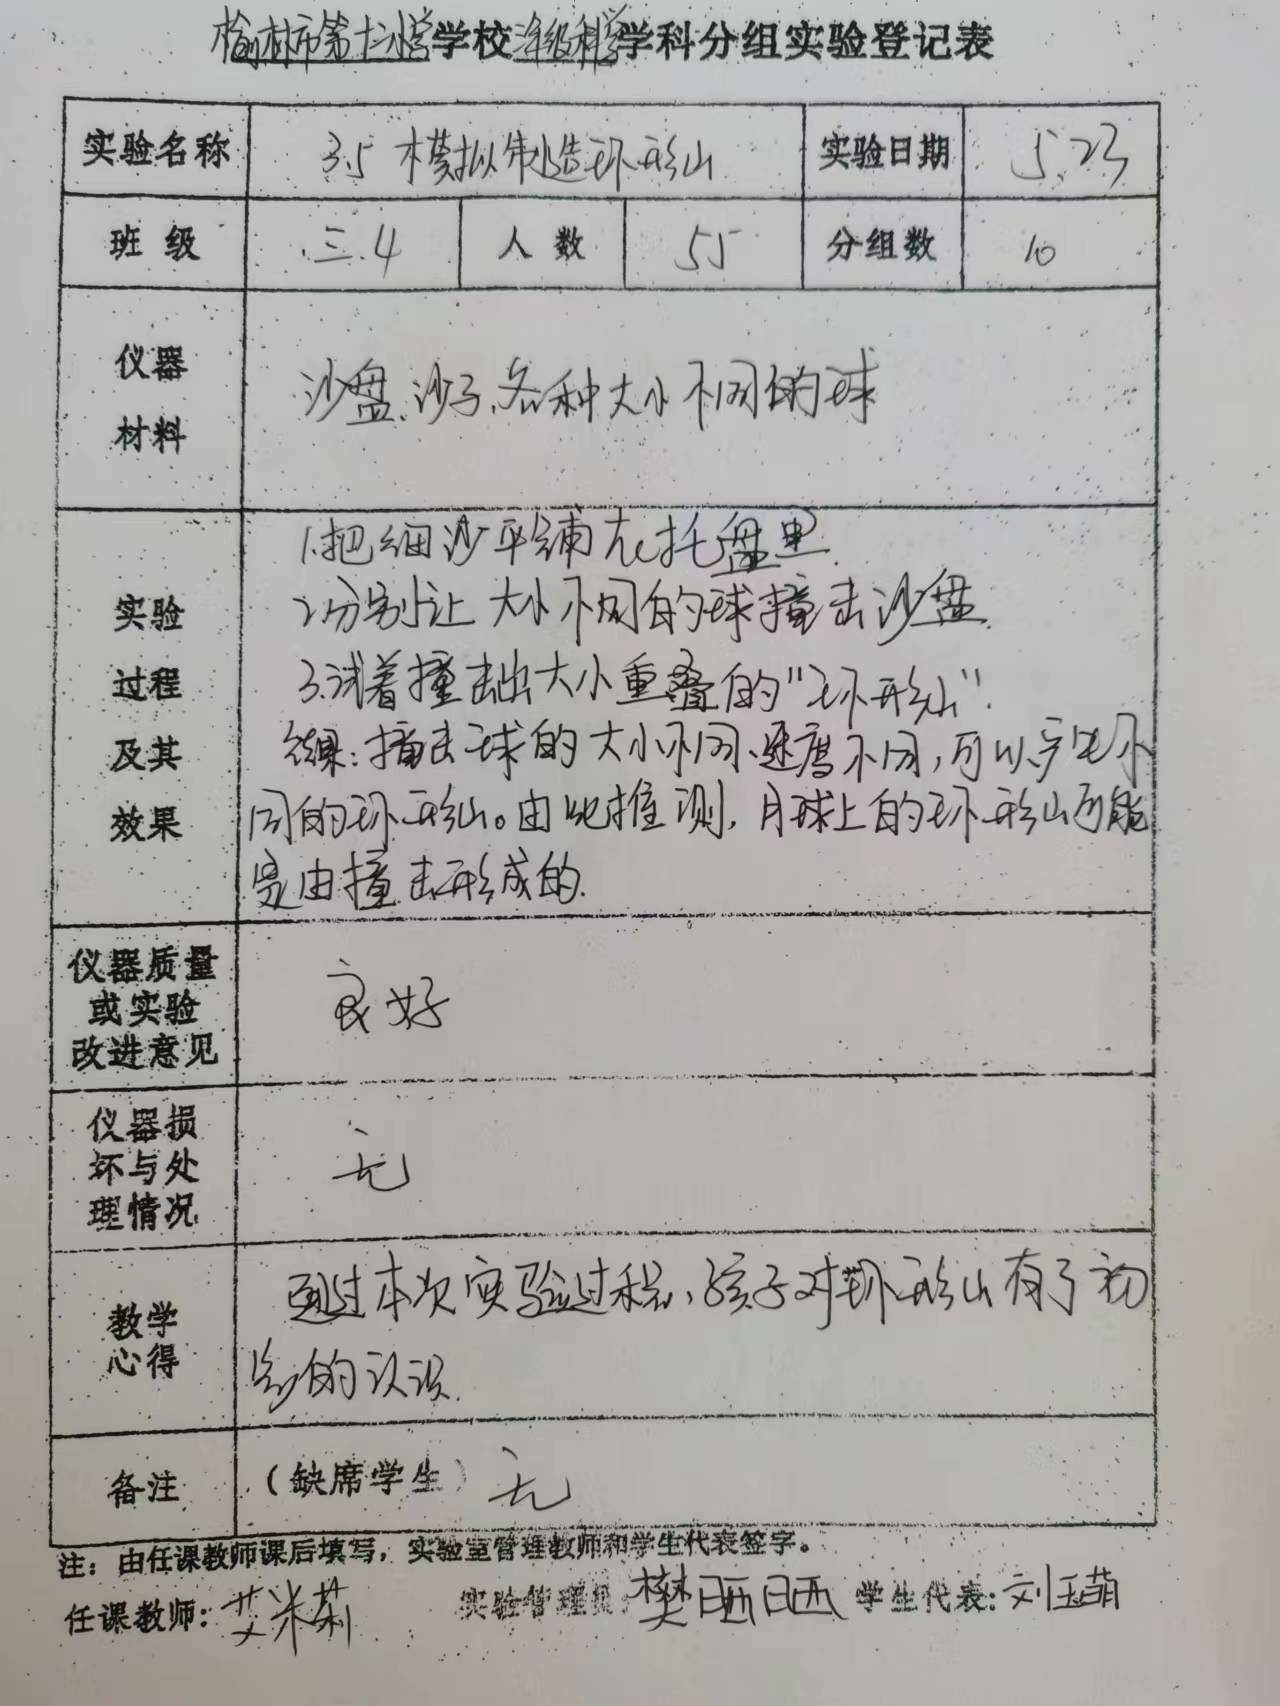 榆林市第十二小学学校三年级科学学科分组实验登记表
实验名称 3.5 模拟制造环形山 实验日期 5.23
班级 三.4 人数 55 分组数 10
仪器材料 沙盘、沙子、各种大小不同的球
实验过程及其效果
1.把细沙平铺在托盘里.
2.分别让大小不同的球撞击沙盘.
3.试着撞击出大小重叠的"环形山".
结果:撞击球的大小不同、速度不同,可以产生不
同的环形山。由此推测,月球上的环形山可能
是由撞击形成的.
仪器质量或实验改进意见 良好
仪器损坏与处理情况 无
教学心得
通过本次实验过程、孩子对环形山有了初
步的认识.
备注 (缺席学生) 无
注:由任课教师课后填写,实验室管理教师和学生代表签字。
任课教师:艾米莉 实验管理员:樊晒晒 学生代表:刘玉萌